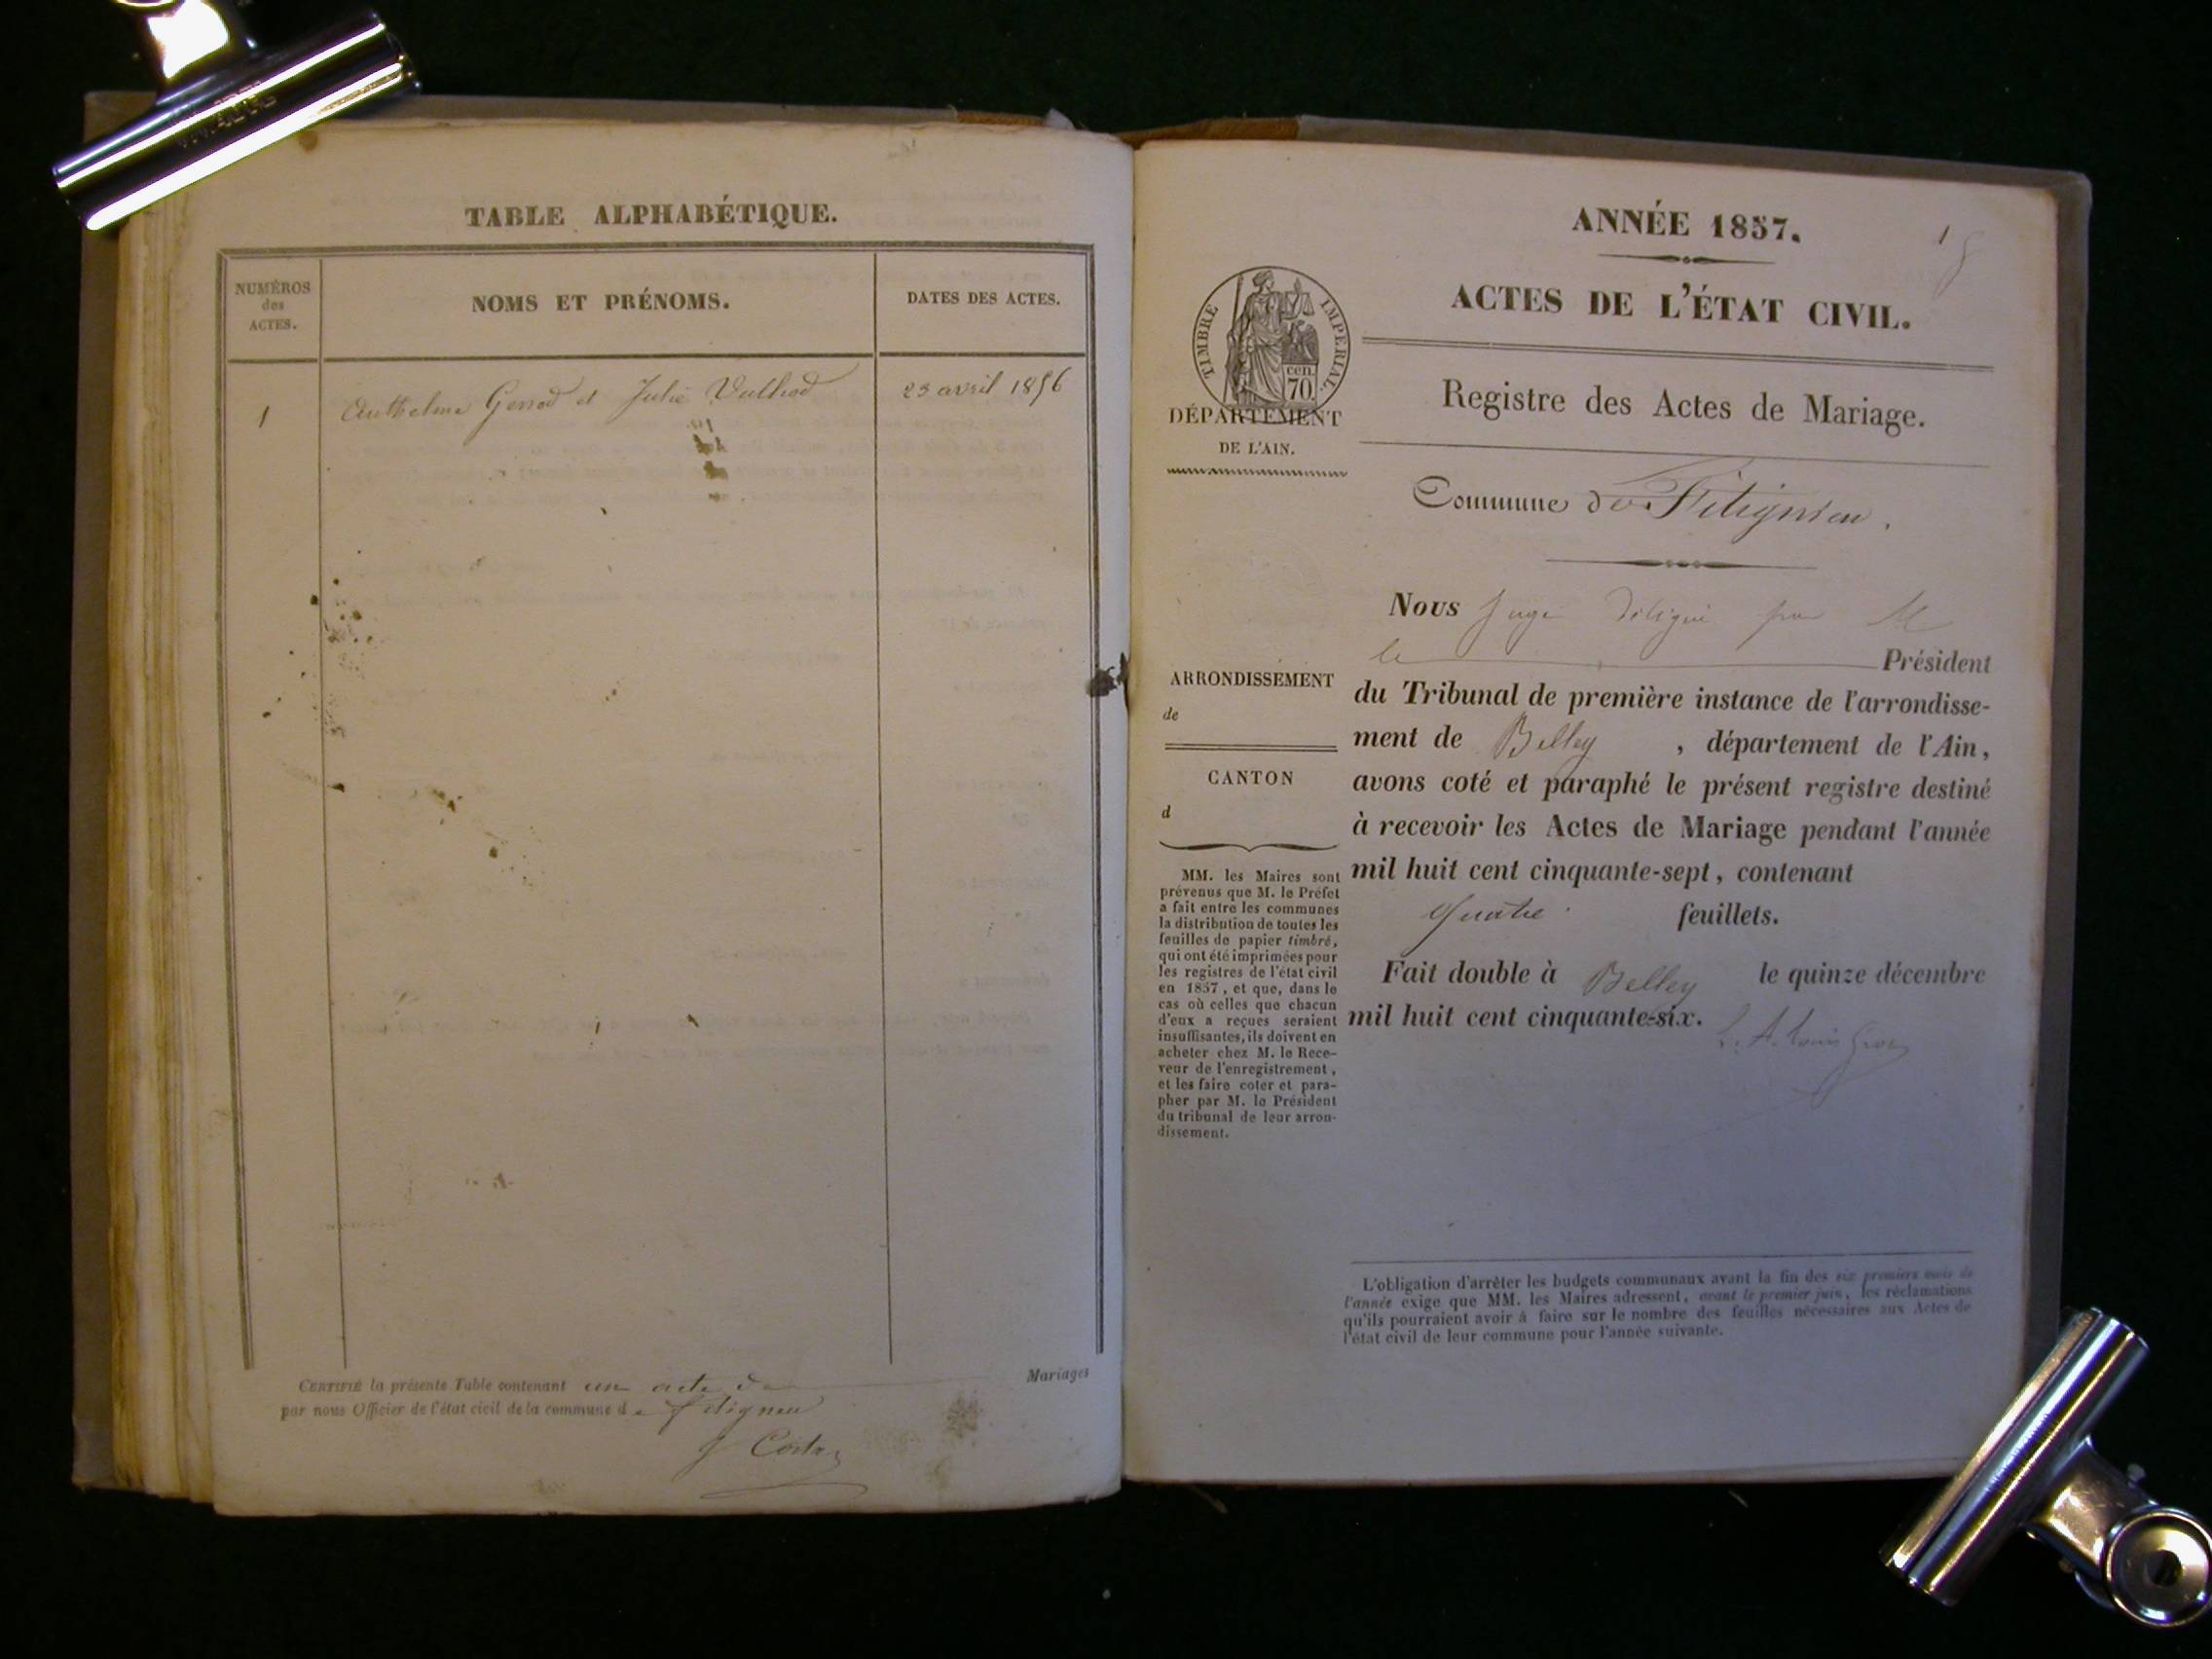 TABLE ALPHABÉTIQUE.
NUMÉROS
des
ACTES.
NOMS ET PRÉNOMS.
DATES DES ACTES.
1
Anthelme Genod et Julie Vulliod
23 avril 1856
CERTIFIÉ la présente Table contenant un acte de Mariages
par nous Officier de l'état civil de la commune de fitignieu
ANNÉE 1857.
1
ACTES DE L'ÉTAT CIVIL.
TIMBRE IMPERIAL.
cen.
70.
DÉPARTEMENT
DE L'AIN.
Registre des Actes de Mariage.
Commune de Fitignieu.
ARRONDISSEMENT
de
CANTON
d
MM. les Maires sont
prévenus que M. le Préfet
a fait entre les communes
la distribution de toutes les
feuilles de papier timbré,
qui ont été imprimées pour
les registres de l'état civil
en 1857, et que, dans le
cas où celles que chacun
d'eux a reçues seraient
insuffisantes, ils doivent en
acheter chez M. le Rece-
veur de l'enregistrement,
et les faire coter et para-
pher par M. le Président
du tribunal de leur arron-
dissement.
Nous Juge délégué par M
le Président
du Tribunal de première instance de l'arrondisse-
ment de Belley, département de l'Ain,
avons coté et paraphé le présent registre destiné
à recevoir les Actes de Mariage pendant l'année
mil huit cent cinquante-sept, contenant
quatre feuillets.
Fait double à Belley le quinze décembre
mil huit cent cinquante-six.
L'obligation d'arrêter les budgets communaux avant la fin des six premiers mois de
l'année exige que MM. les Maires adressent, avant le premier juin, les réclamations
qu'ils pourraient avoir à faire sur le nombre des feuilles nécessaires aux Actes de
l'état civil de leur commune pour l'année suivante.